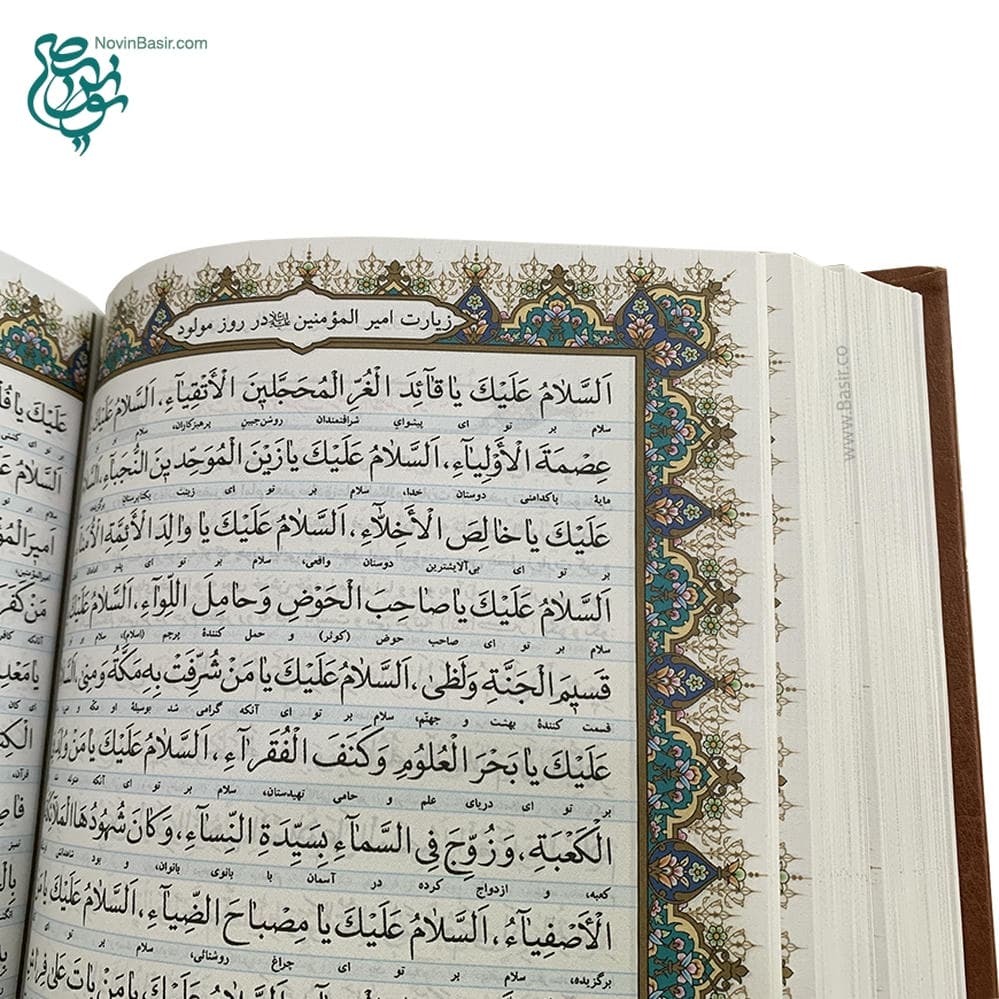 NovinBasir.com
زیارت امیر المؤمنین در روز مولود
اَلسَّلامُ عَلَيْكَ يا قآئِدَ الْغُرِّ الْمُحَجَّلينَ الْأَتْقِيآءِ، اَلسَّلامُ عَلَيْكَ
سلام بر تو ای پیشوای شرافتمندان روشن‌جبین پرهیزکاران، سلام بر
عِصْمَةَ الْأَوْلِيآءِ، اَلسَّلامُ عَلَيْكَ يا زَيْنَ الْمُوَحِّدينَ النُّجَبآءِ،
مایهٔ پاکدامنی دوستان خدا، سلام بر تو ای زینت یکتاپرستان
عَلَيْكَ يا خالِصَ الْأَخِلّآءِ، اَلسَّلامُ عَلَيْكَ يا والِدَ الْأَئِمَّةِ
بر تو ای بی‌آلایشترین دوستان واقعی، سلام بر تو ای پدر
اَلسَّلامُ عَلَيْكَ يا صاحِبَ الْحَوْضِ وَحامِلَ اللِّوآءِ، اَلسَّلامُ عَلَيْكَ
سلام بر تو ای صاحب حوض (کوثر) و حمل کنندهٔ پرچم (اسلام)، سلام بر تو
قَسيمَ الْجَنَّةِ وَلَظى، اَلسَّلامُ عَلَيْكَ يا مَنْ شُرِّفَتْ بِهِ مَكَّةُ وَمِنى،
قسمت کنندهٔ بهشت و جهنّم، سلام بر تو ای آنکه گرامی شد بوسیلهٔ او مکه و
عَلَيْكَ يا بَحْرَ الْعُلُومِ وَكَنَفَ الْفُقَرآءِ، اَلسَّلامُ عَلَيْكَ يا مَنْ
بر تو ای دریای علم و حامی تهیدستان، سلام بر تو ای آنکه
الْكَعْبَةِ، وَزُوِّجَ فِى السَّمآءِ بِسَيِّدَةِ النِّسآءِ، وَكانَ شُهُودُهَا
کعبه، و ازدواج کرده در آسمان با بانوی بانوان، و بود
الْأَصْفِيآءُ، اَلسَّلامُ عَلَيْكَ يا مِصْباحَ الضِّيآءِ، اَلسَّلامُ عَلَيْكَ
برگزیده، سلام بر تو ای چراغ روشنائی، سلام بر تو ای
عَلَيْكَ يا مَنْ باتَ عَلى
www.Basir.co